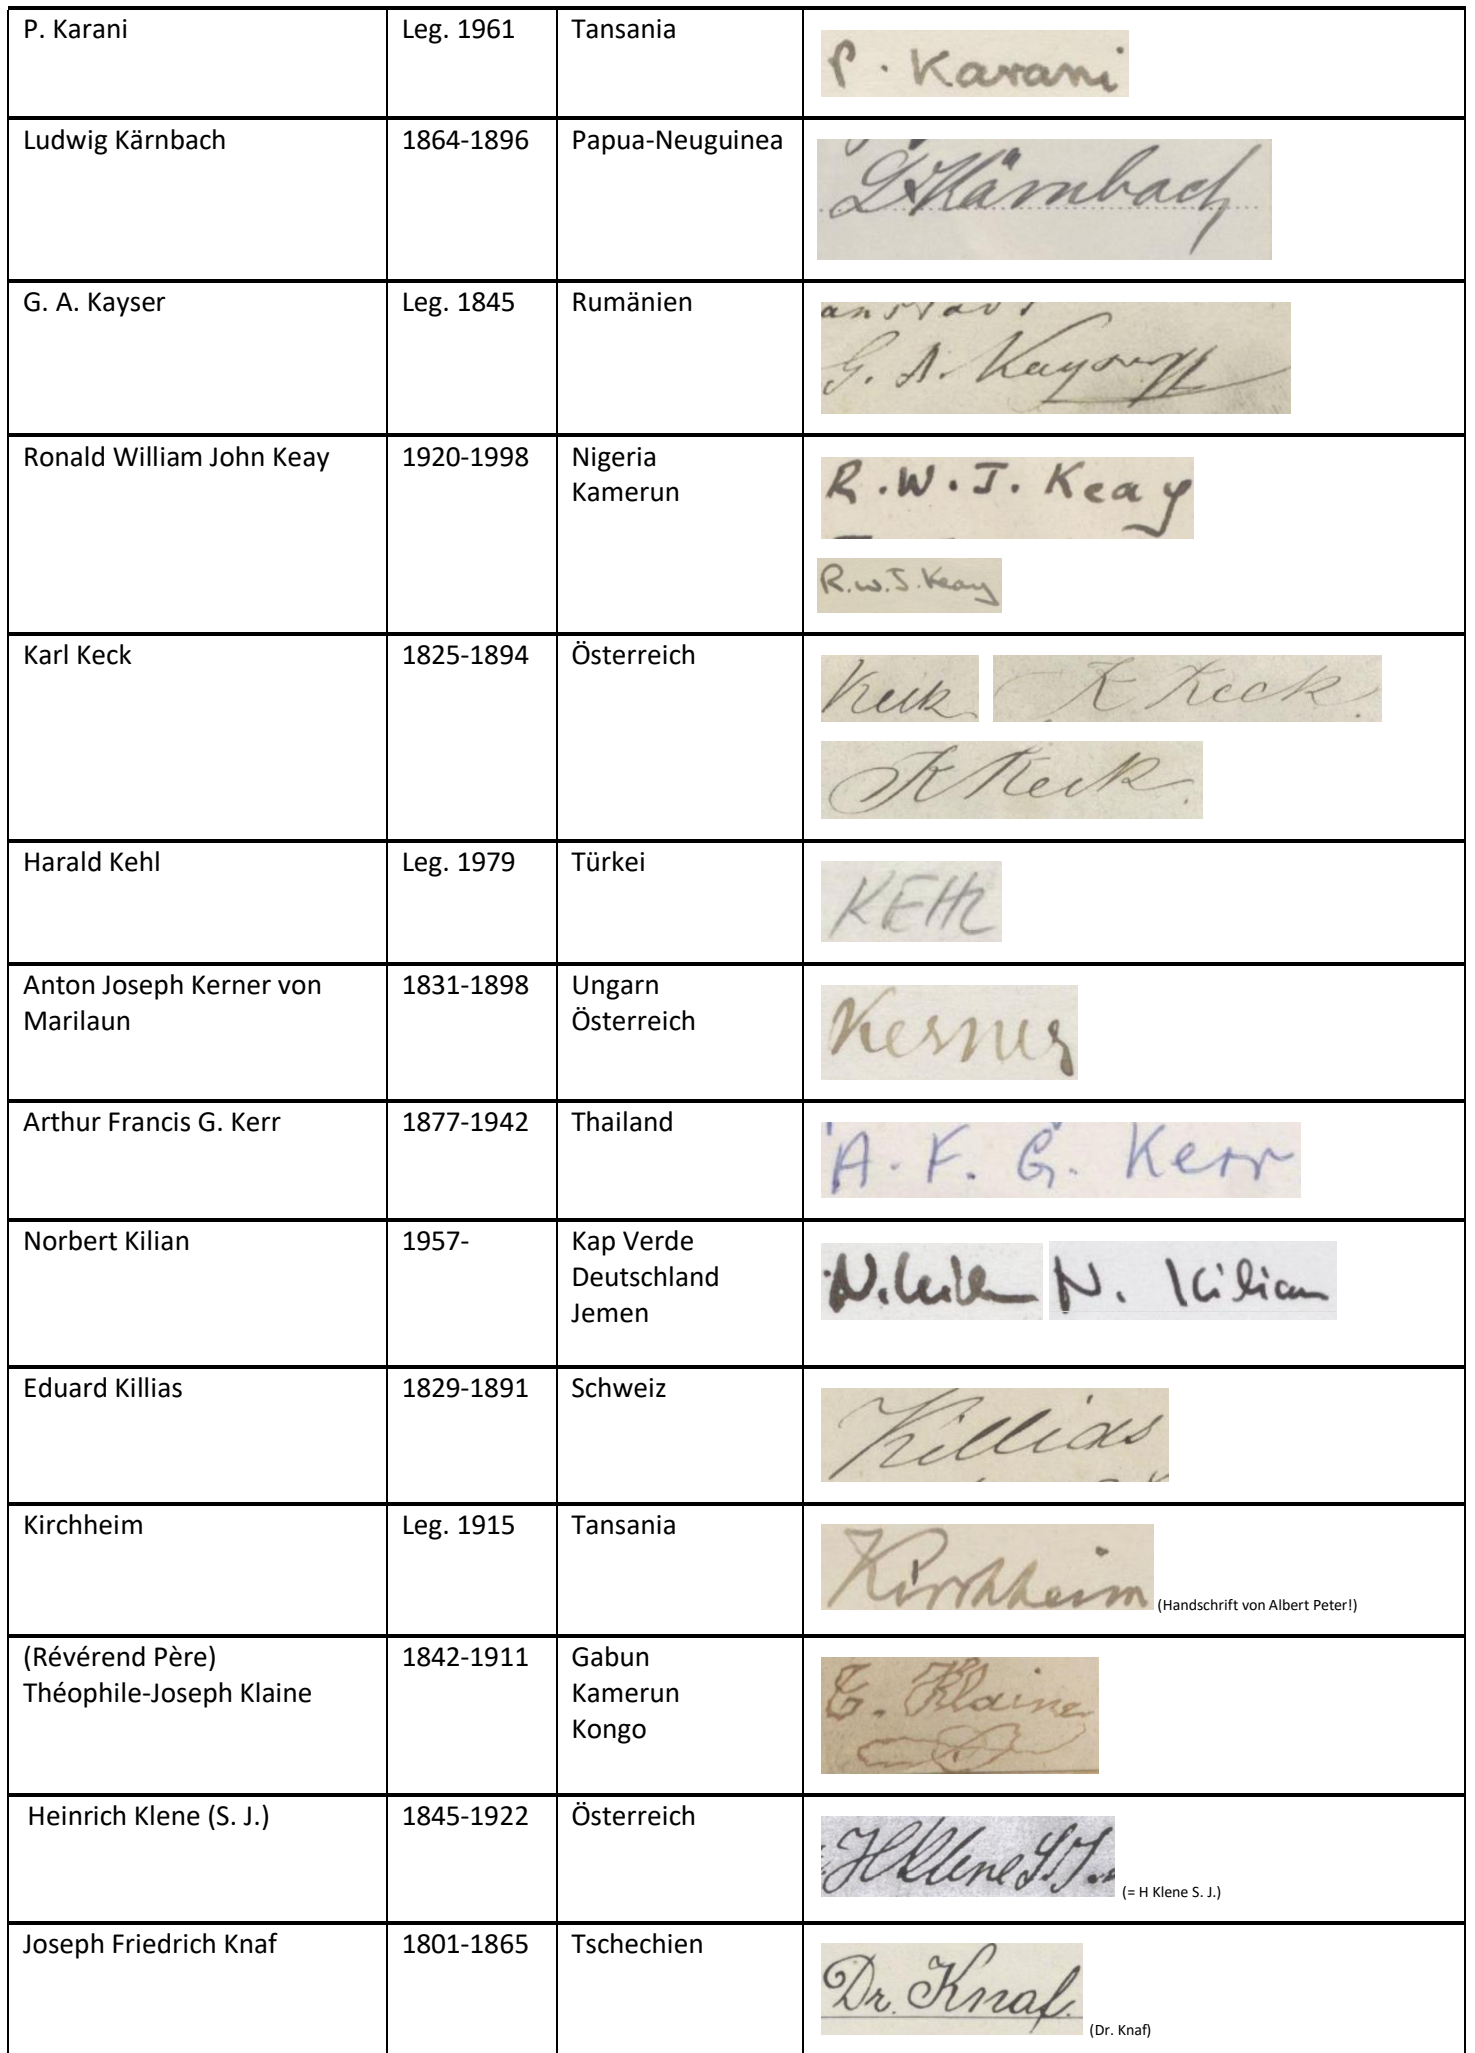 P. Karani Leg. 1961 Tansania P. Karani
Ludwig Kärnbach 1864-1896 Papua-Neuguinea L Kärnbach
G. A. Kayser Leg. 1845 Rumänien
G. A. Kayser
Ronald William John Keay 1920-1998 Nigeria R.W.J. Keay
Kamerun
R.W.J. Keay
Karl Keck 1825-1894 Österreich Keck K Keck.
K Keck.
Harald Kehl Leg. 1979 Türkei KEHL
Anton Joseph Kerner von 1831-1898 Ungarn Kerner
Marilaun Österreich
Arthur Francis G. Kerr 1877-1942 Thailand A. F. G. Kerr
Norbert Kilian 1957- Kap Verde N. Kilian N. Kilian
Deutschland
Jemen
Eduard Killias 1829-1891 Schweiz Killias
Kirchheim Leg. 1915 Tansania Kirchheim (Handschrift von Albert Peter!)
(Révérend Père) 1842-1911 Gabun T. Klaine
Théophile-Joseph Klaine Kamerun
Kongo
Heinrich Klene (S. J.) 1845-1922 Österreich H Klene S.J. (= H Klene S. J.)
Joseph Friedrich Knaf 1801-1865 Tschechien Dr. Knaf. (Dr. Knaf)